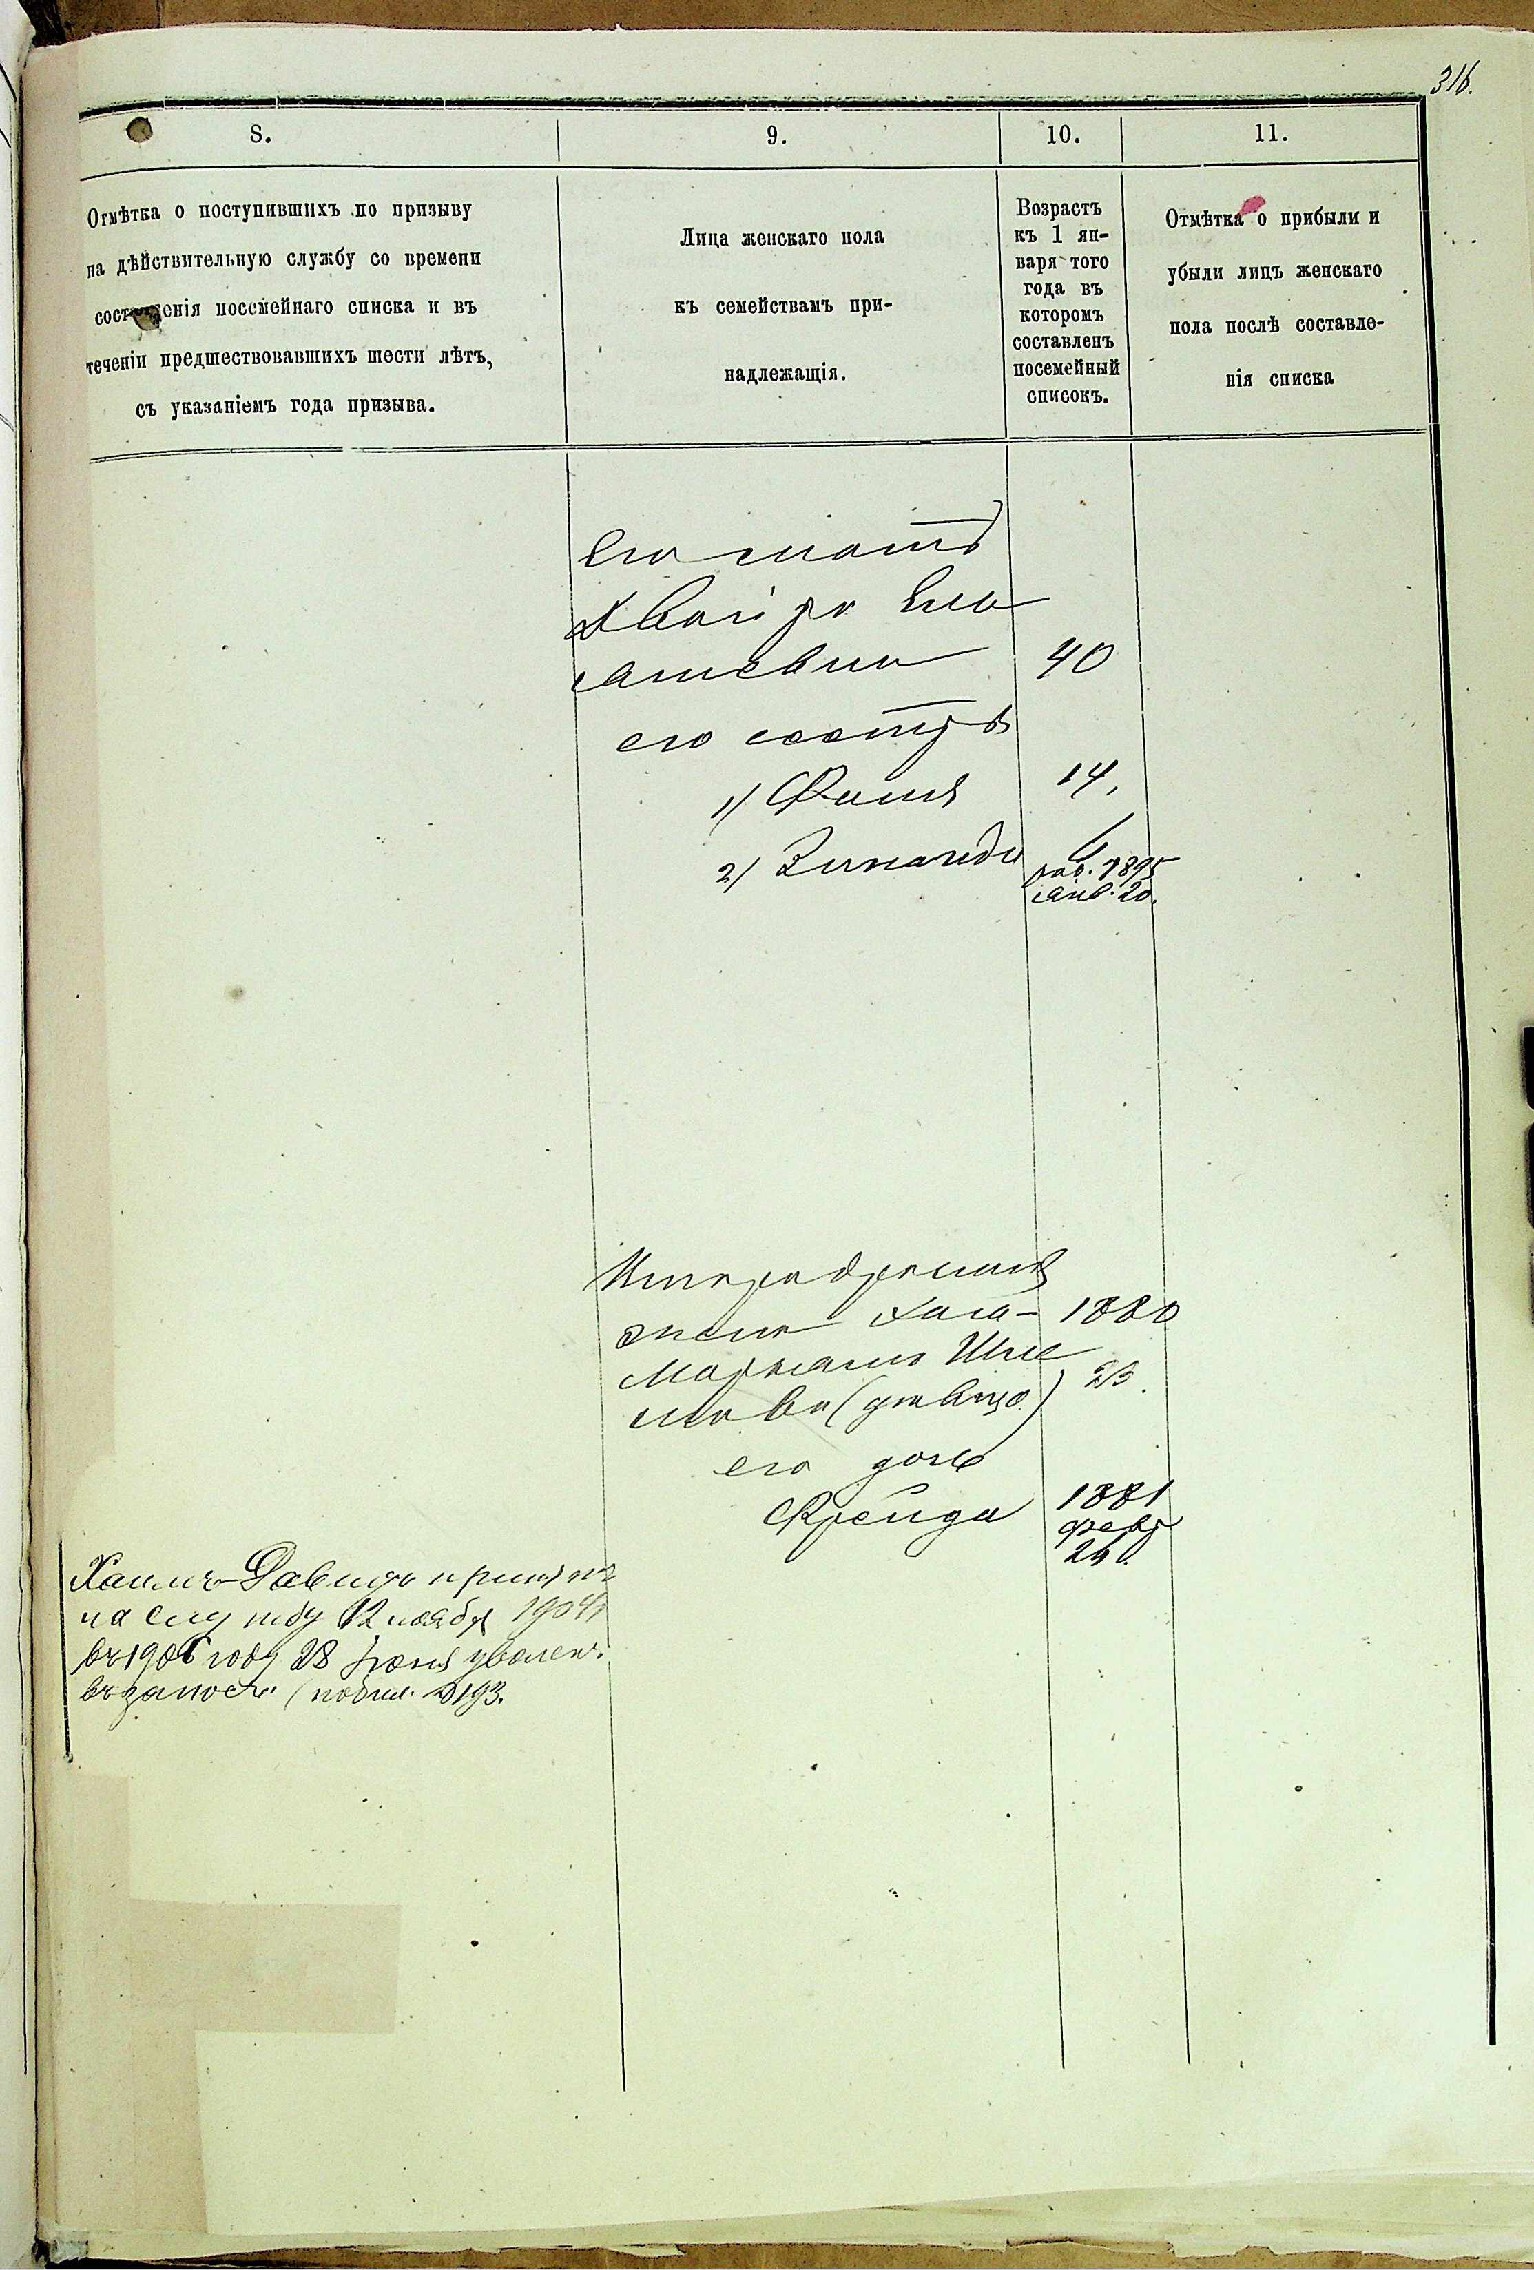 316.
8.
9.
10.
11.
Отмѣтка о поступившихъ по призыву
на дѣйствительную службу со времени
составленія посемейнаго списка и въ
теченіи предшествовавшихъ шести лѣтъ,
съ указаніемъ года призыва.
Лица женскаго пола
къ семействамъ при-
надлежащія.
Возрастъ
къ 1 ян-
варя того
года въ
которомъ
составленъ
посемейный
списокъ.
Отмѣтка о прибыли и
убыли лицъ женскаго
пола послѣ составле-
нія списка
Его мать
Двойра
40
его сестры
1) Фаня 14,
2) Зинаида
рад. 1895
янв. 20.
жена Хая- 1880
23.
его дочь
Фрейда 1881
февр
Хаимъ-Давидъ принятъ
на службу 12 ноября 1904
въ 1906 году 28 уволен.
въ запасъ. 193.